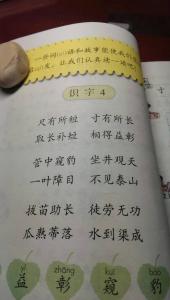 一些词语和故事能使我们
发。让我们认真读一读吧
识字4
尺有所短 寸有所长
取长补短 相得益彰
管中窥豹 坐井观天
一叶障目 不见泰山
拔苗助长 徒劳无功
瓜熟蒂落 水到渠成
yì zhāng kuī bào
益 彰 窥 豹